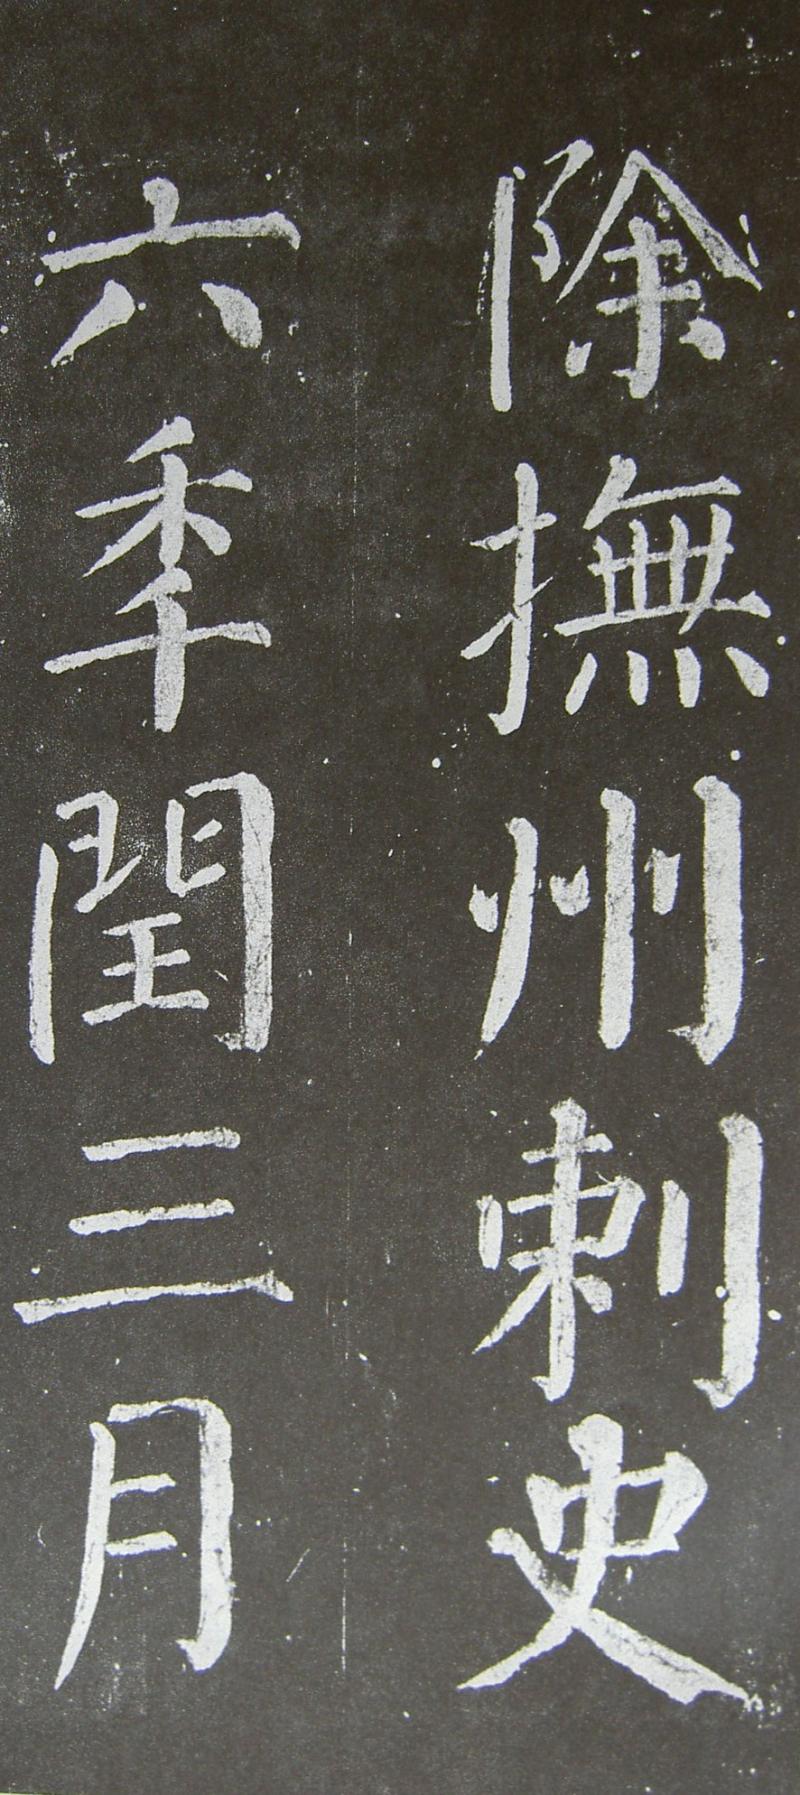 除撫州刺史
六季閏三月